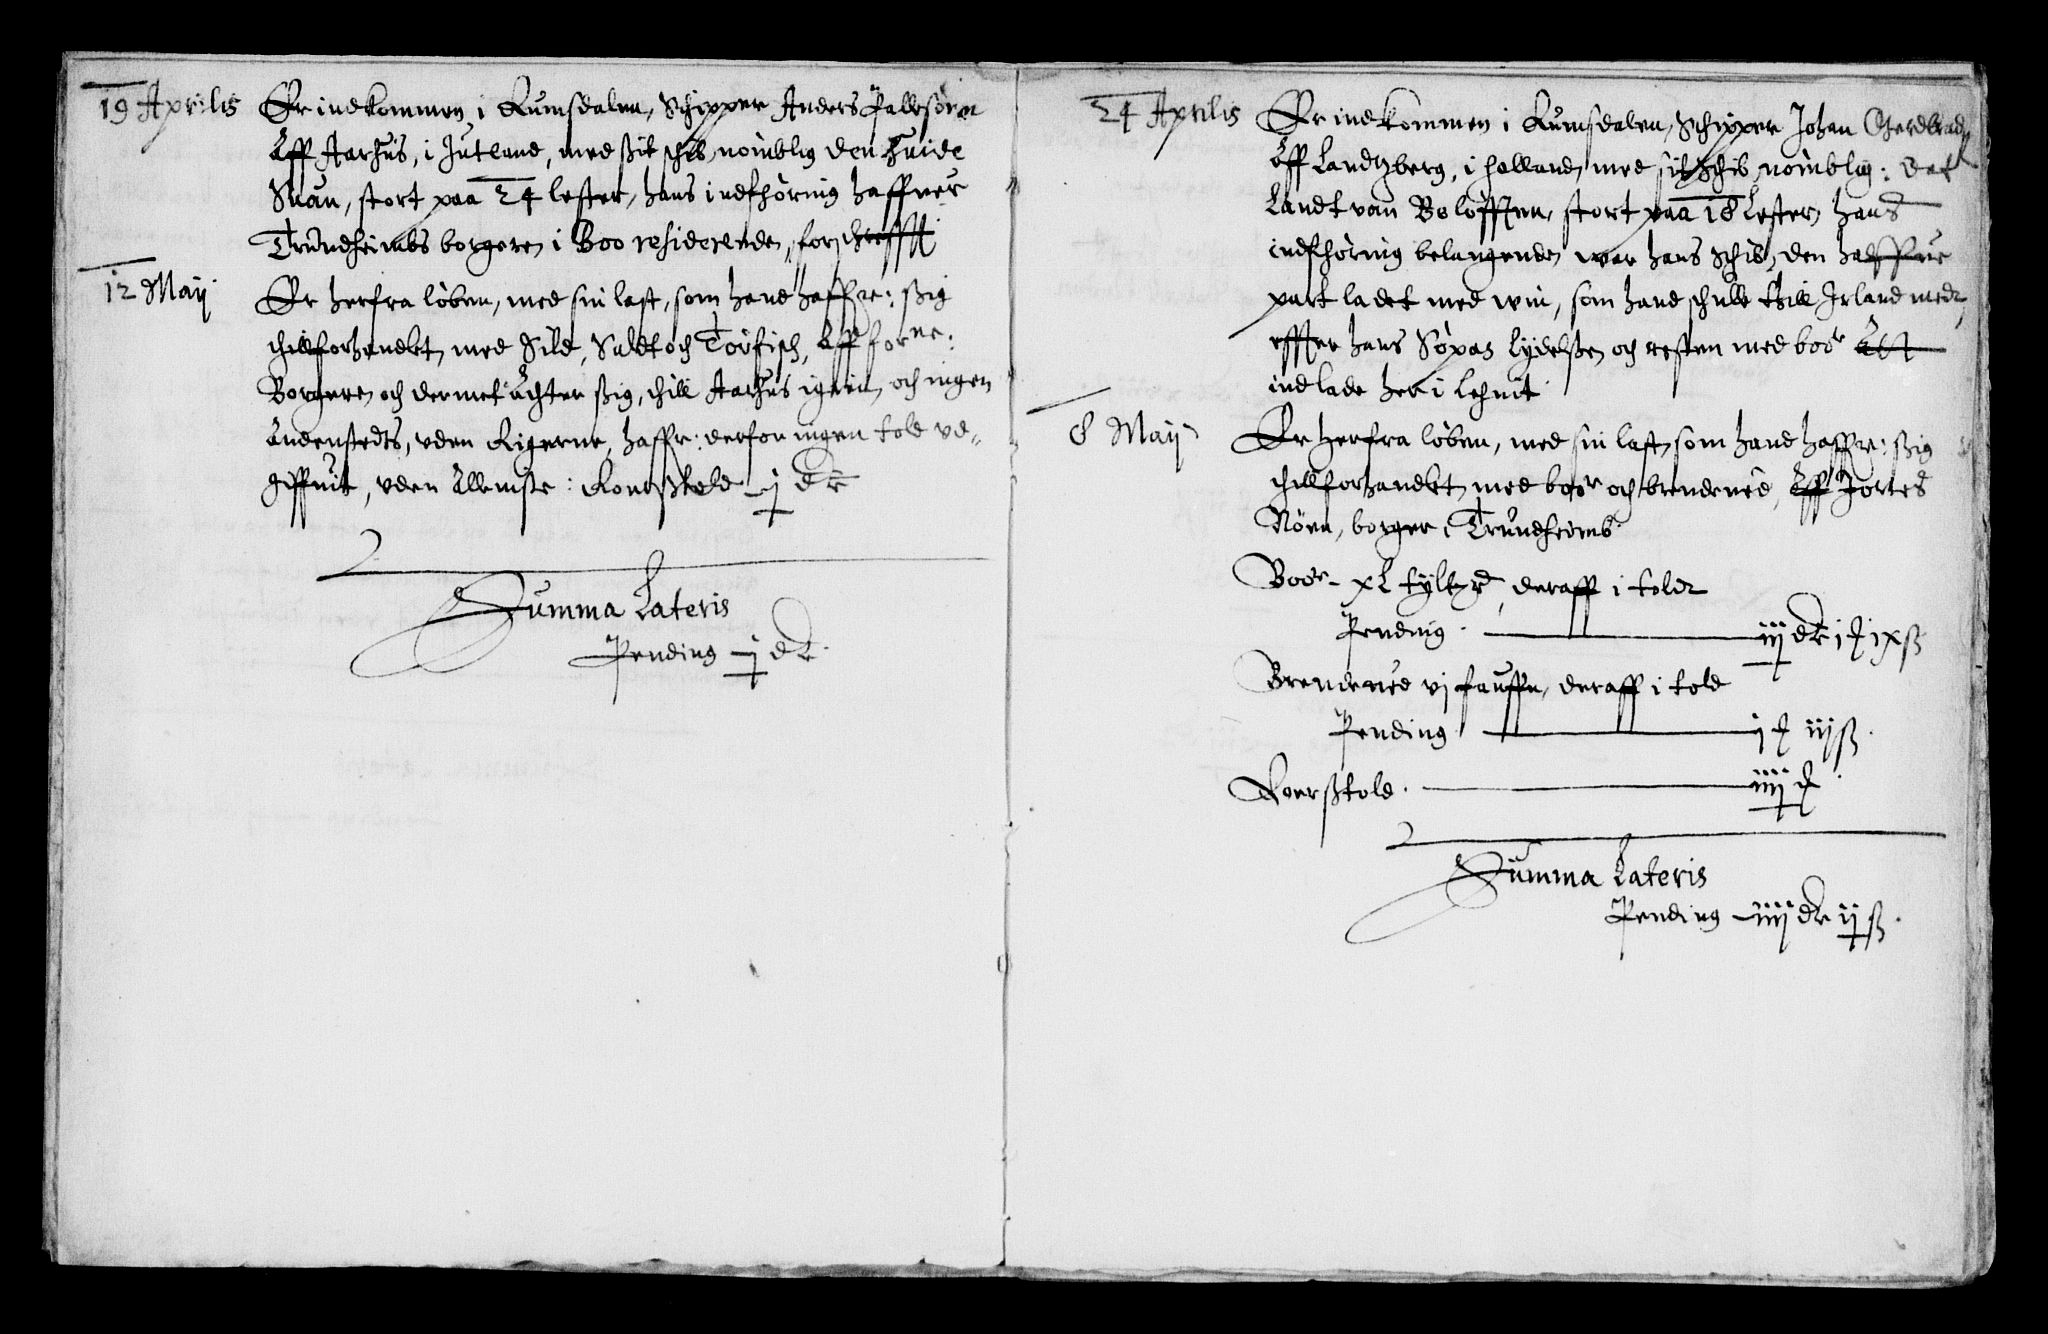 19 Aprilis
Er indkommen i Rumsdalen, Schipper Anders Pallesøren
Aff Aarhus, i Jutland, med ßit schib, nomblig den huide
Suan, stort paa 24 lester, hans indfhøring haffuer
Trundheimbs borgere, i Boo residerende, forschrefft
12 Maij
Er herfra løben, med sin last, som hand haffr: ßig
thillforhandlet, med Sild, Saldt och Tørfisch, Aff forne:
Borgere, och dermet Achter ßig, thill Aarhus igien, och ingen
Andenstedts, vden Rigerne, haffr: derfor ingen told vd-
giffuit, vden Alleniste: Roerßtold j dr
Summa Lateris
Pending j dr.
24 Aprilis
Er indkommen i Rumsdalen, Schipper Johan Gerdbrad
Aff Landtzberg, i holland, med sit Schib, nomblig: Det
Landt van Belofften, stort paa 18 Lester, hans
indfhøring belangende, war hans Schib, den halffue
part ladet med win, som hand schulle thill Irland med,
effter hans Søpas lydelße, och resten med bor Alt
indlade her i Lehnit
8 Maij
Er herfra løben, med sin last, som hand haffr: ßig
thillforhandlet, med borr och brendeued, Aff Jortes
Nørn, borger i Trundheimb
Bordr xL tylter, deraff i told
Pending iij dr i ț ixß
Brendeued vj fauffn, deraff i told
Pending j ț iijß.
Roerßtold iiij ț
Summa Lateris
Pending iiij dr ijß.